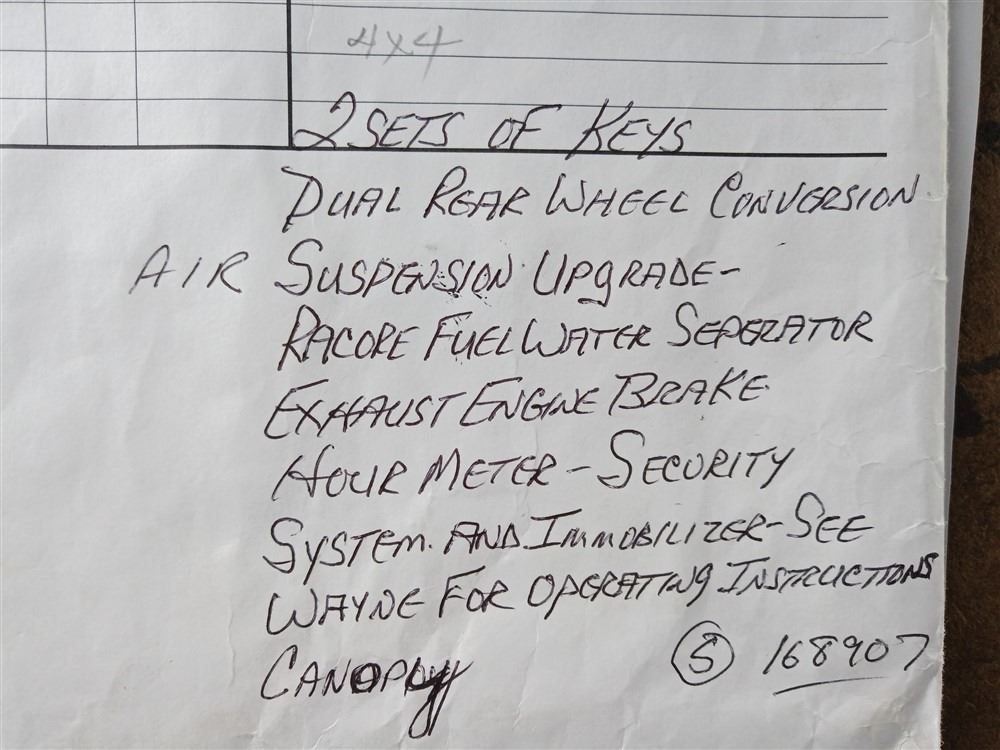 4x4
2 SETS OF KEYS
DUAL REAR WHEEL CONVERSION
AIR SUSPENSION UPGRADE-
RACORE FUEL WATER SEPERATOR
EXHAUST ENGINE BRAKE
HOUR METER - SECURITY
SYSTEM. AND IMMOBILIZER - SEE
WAYNE FOR OPERATING INSTRUCTIONS
CANOPY
S 168907